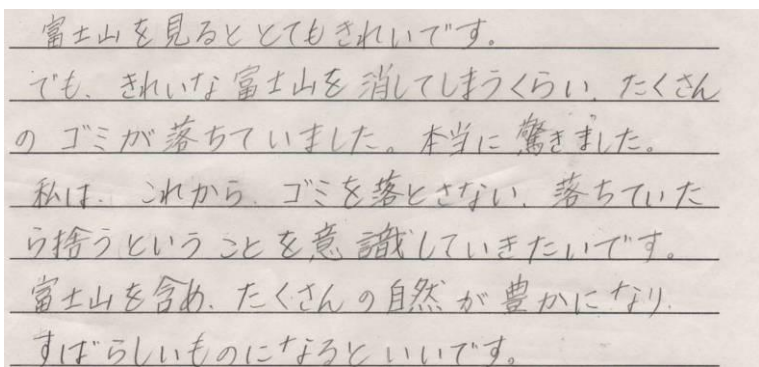 富士山を見るととてもきれいです。
でも、きれいな富士山を消してしまうくらい、たくさん
のゴミが落ちていました。本当に驚きました。
私は、これから、ゴミを落とさない、落ちていた
ら拾うということを意識していきたいです。
富士山を含め、たくさんの自然が豊かになり、
すばらしいものになるといいです。